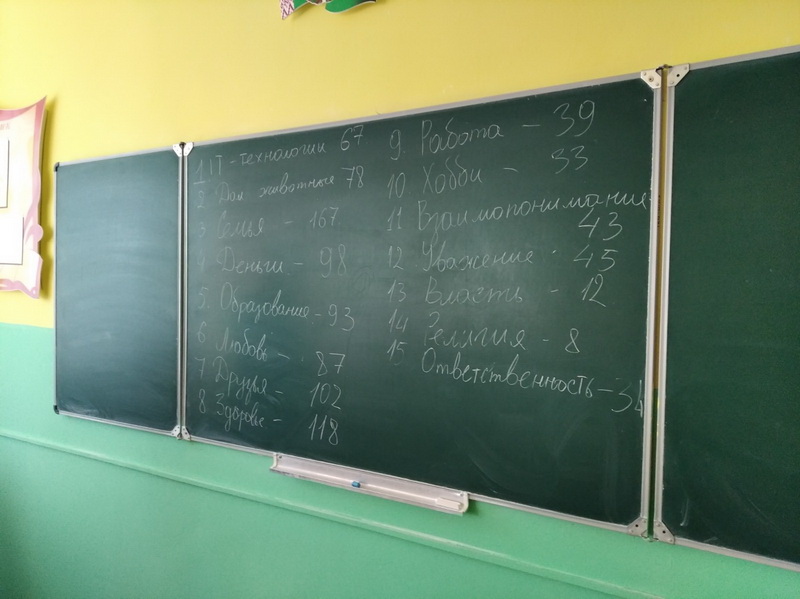 1. IT - технологии 67
2 Дом животные 78
3 Семья - 167
4 Деньги - 98
5. Образование - 93
6 Любовь - 87
7 Друзья - 102
8. Здоровье - 118
9. Работа - 39
10. Хобби - 33
11 Взаимопонимание
43
12 Уважение - 45
13 Власть - 12
14 Религия - 8
15 Ответственность - 34